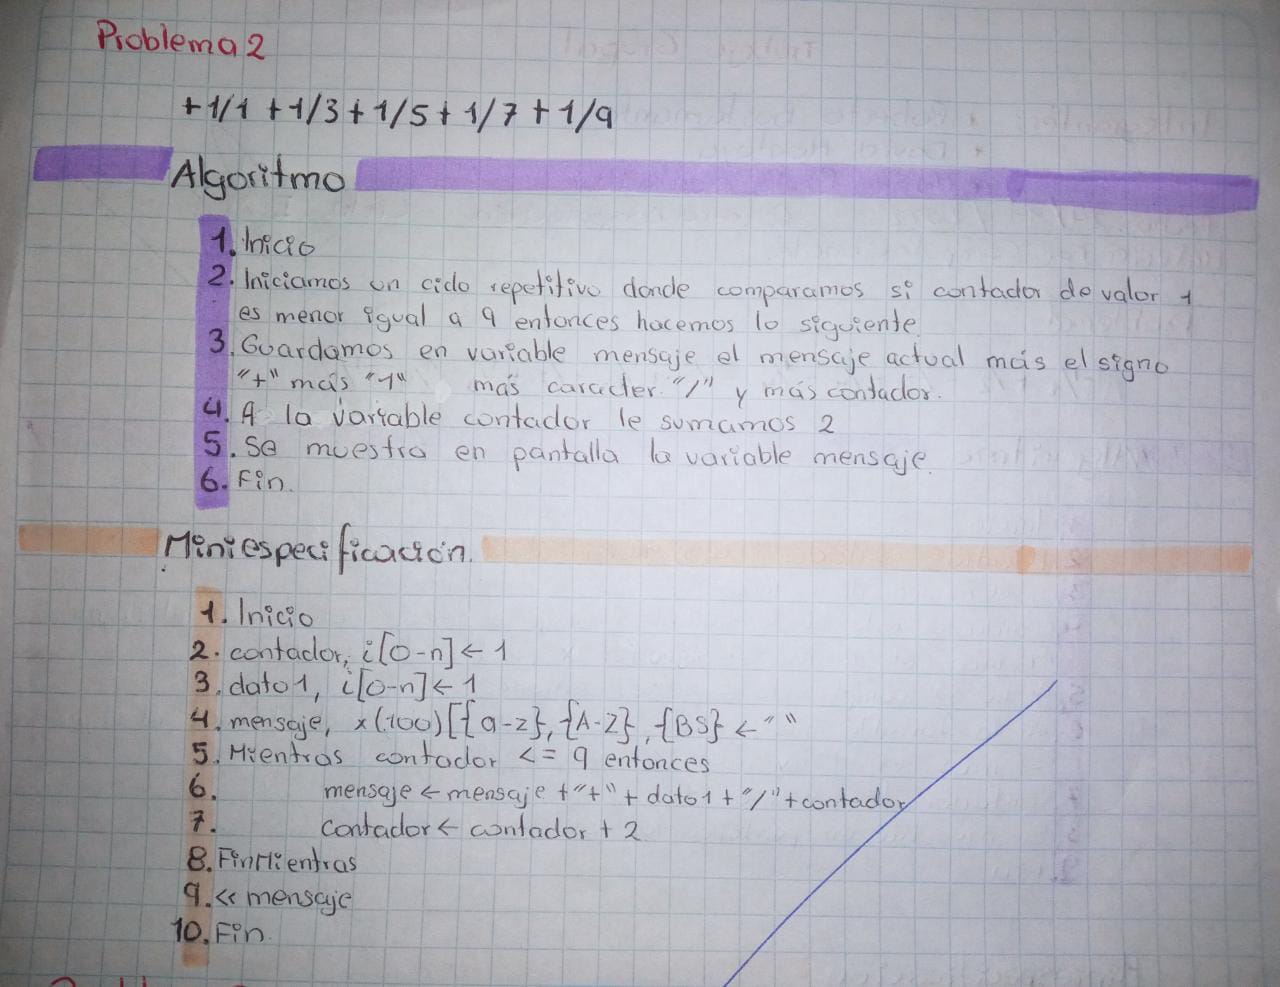 Problema 2
+1/1 +1/3 + 1/5 + 1/7 + 1/9
Algoritmo
1. Inicio
2. Iniciamos un ciclo repetitivo donde comparamos si contador de valor 1
es menor igual a 9 entonces hacemos lo siguiente.
3. Guardamos en variable mensaje el mensaje actual más el signo
"+" más "1" más caracter "/" y más contador.
4. A la variable contador le sumamos 2
5. Se muestra en pantalla la variable mensaje.
6. Fin.
Miniespecificación.
1. Inicio
2. contador, i[0-n] ← 1
3. dato1, i[0-n] ← 1
4. mensaje, x(100)[{a-z},{A-Z},{BS} ← " "
5. Mientras contador <= 9 entonces
6. mensaje ← mensaje + "+" + dato1 + "/" + contador
7. contador ← contador + 2
8. FinMientras
9. << mensaje
10. Fin.